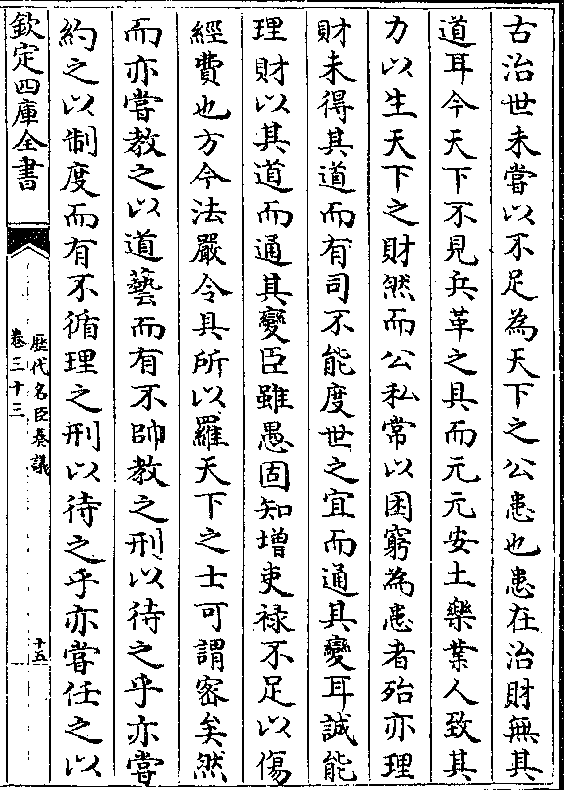 古治世未嘗以不足為天下之公患也患在治財無其
道耳今天下不見兵革之具而元元安土樂業人致其
力以生天下之財然而公私常以困窮為患者殆亦理
財未得其道而有司不能度世之宜而通其變耳誠能
理財以其道而通其變臣雖愚固知增吏祿不足以傷
經費也方今法嚴令具所以羅天下之士可謂密矣然
而亦嘗教之以道藝而有不帥教之刑以待之乎亦嘗
約之以制度而有不循理之刑以待之乎亦嘗任之以
欽定四庫全書
歷代名臣奏議
卷三十三
十五